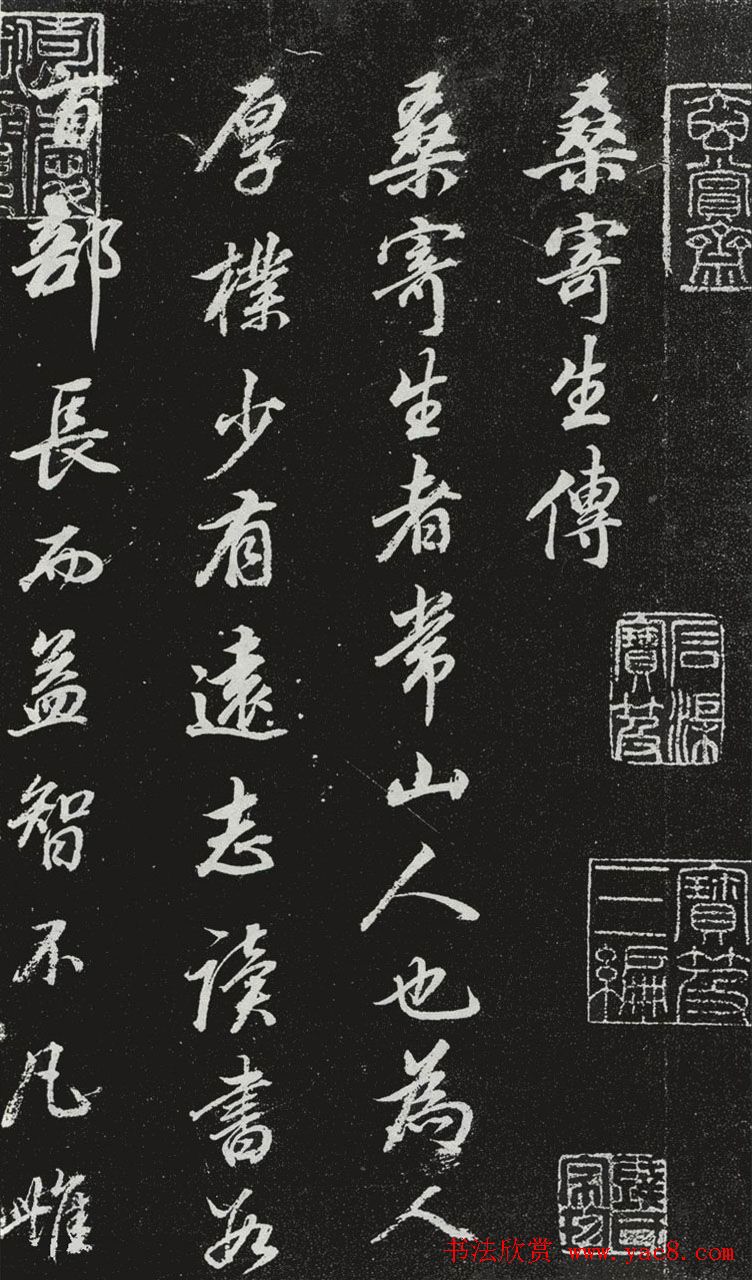 桑寄生傳
桑寄生者常山人也為人
厚樸少有遠志讀書數
百部長而益智不凡雌
玄賞齋
寶笈
寶笈
三編
书法欣赏 www.yac8.com